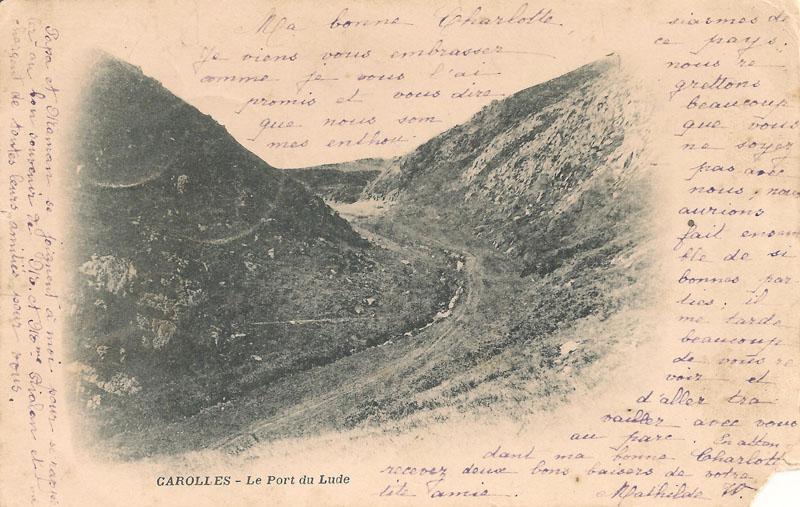 Ma bonne Charlotte,
Je viens vous embrasser
comme je vous l'ai
promis et vous dire
que nous som
mes enthou
siasmés de
ce pays,
nous re
grettons
beaucoup
que vous
ne soyez
pas avec
nous, nous
aurions
fait ensem
ble de si
bonnes par
ties; il
me tarde
beaucoup
de vous re
voir et
d'aller tra
vailler avec vous
au parc. En atten
dant ma bonne Charlotte
recevez deux bons baisers de votre
tite amie.
Mathilde W.
Papa et Maman se joignent à moi pour
bon souvenir de Mr et Mme
chargent de toutes leurs amitiés pour
vous.
CAROLLES - Le Port du Lude